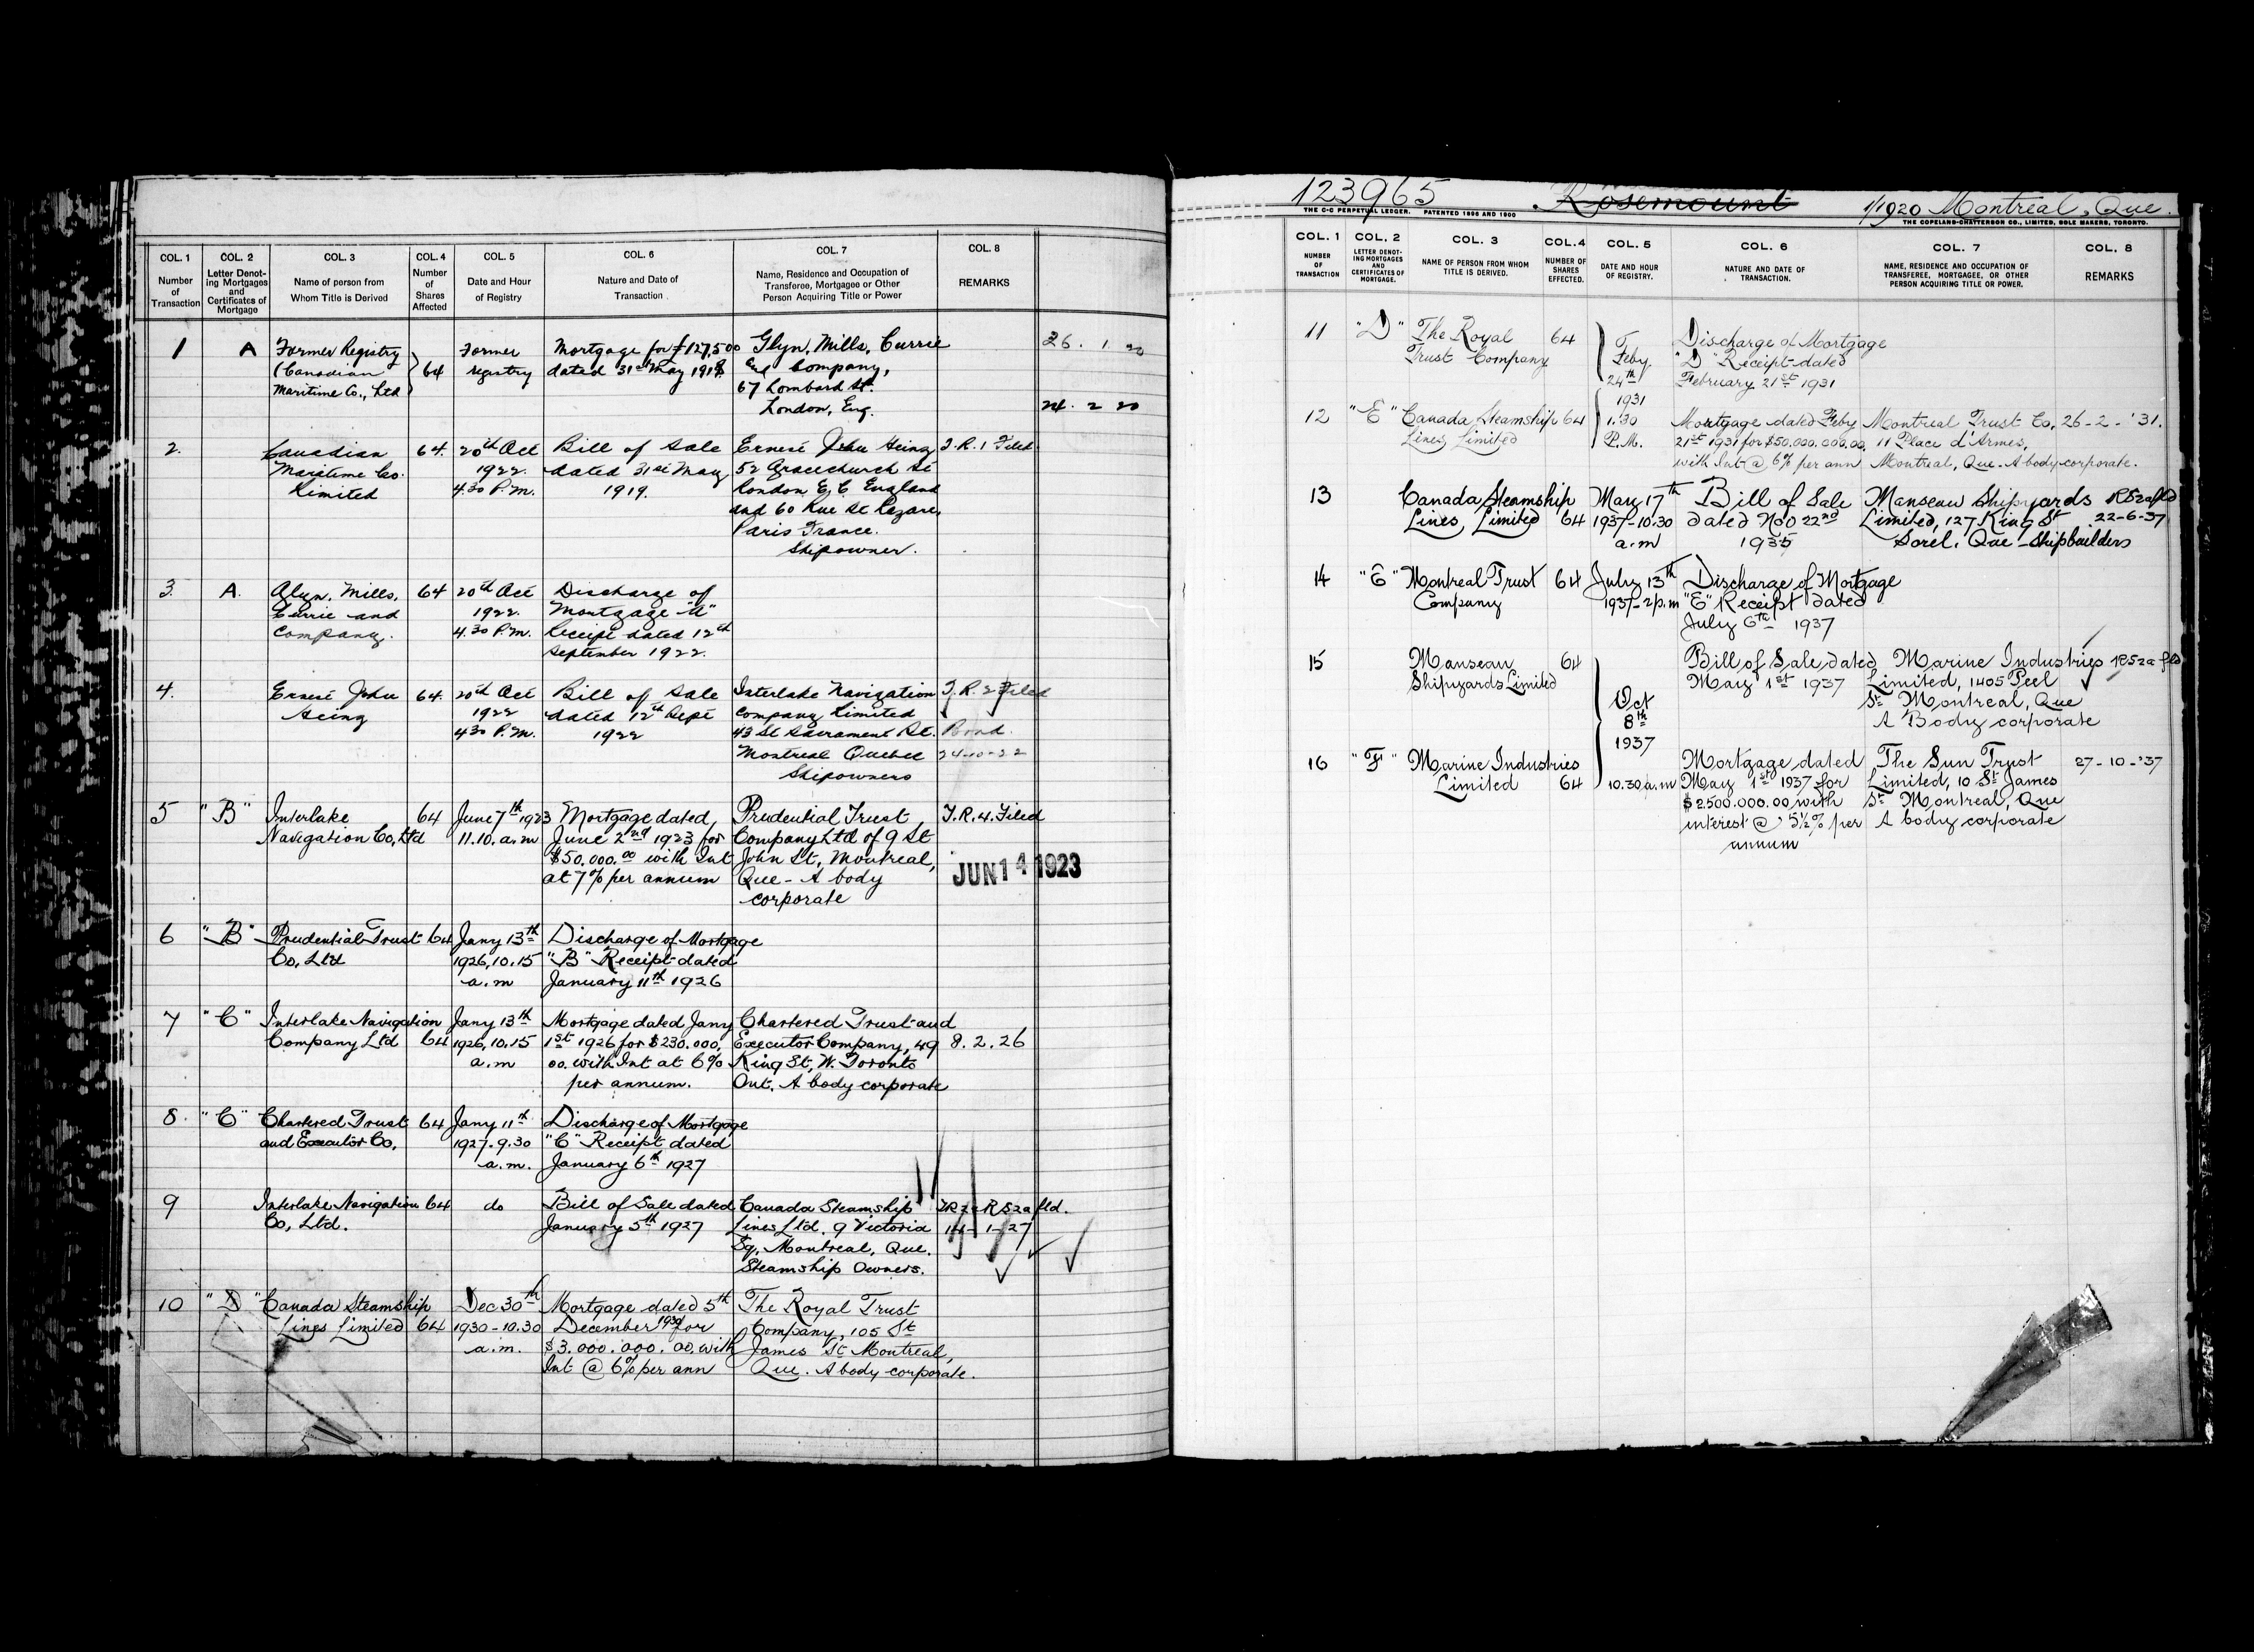 COL. 1 COL. 2 COL. 3 COL. 4 COL. 5 COL. 6 COL. 7 COL. 8
Number of Transaction
Letter Denot-ing Mortgages and Certificates of Mortgage
Name of person from Whom Title is Derived
Number of Shares Affected
Date and Hour of Registry
Nature and Date of Transaction
Name, Residence and Occupation of Transferee, Mortgagee or Other Person Acquiring Title or Power
REMARKS
1 A Former Registry Former Mortgage for £127,500 Glyn, Mills, Currie 26. 1. 20
(Canadian 64 registry dated 31st May 1919. and Company,
Maritime Co., Ltd 67 Lombard St.
London, Eng. 24. 2 20
2. Canadian 64. 20th Oct Bill of Sale Ernest John Heinz J.R. 1 Filed.
Maritime Co. 1922. dated 31st May 52 Gracechurch St
Limited 4.30 P.M. 1919. London E.C. England
and 60 Rue St Lazare,
Paris France.
Shipowner.
3. A. Glyn, Mills, 64 20th Oct Discharge of
Currie and 1922. Mortgage "A"
Company. 4.30 P.M. Receipt dated 12th
September 1922.
4. Ernest John 64. 20th Oct Bill of Sale Interlake Navigation J.R. 2 Filed
Heinz 1922 dated 12th Sept Company Limited
4.30 P.M. 1922 43 St Sacrament St. Bond.
Montreal Quebec 24-10-22
Shipowners
5 "B" Interlake 64 June 7th 1923 Mortgage dated, Prudential Trust J.R. 4. Filed
Navigation Co, Ltd 11.10. a.m June 2nd 1923 for Company Ltd of 9 St
$50,000.00 with Int John St, Montreal, JUN 14 1923
at 7% per annum Que - A body
corporate
6 "B" Prudential Trust 64 Jany 13th Discharge of Mortgage
Co, Ltd 1926, 10.15 "B" Receipt dated
a.m January 11th 1926
7 "C" Interlake Navigation Jany 13th Mortgage dated Jany Chartered Trust and
Company Ltd 64 1926, 10.15 1st 1926 for $230.000, Executor Company, 49 8. 2. 26
a.m 00. with Int at 6% King St, W. Toronto
per annum. Ont. A body corporate
8. "C" Chartered Trust 64 Jany 11th Discharge of Mortgage
and Executor Co, 1927-9.30 "C" Receipt dated
a.m. January 6th 1927
9 Interlake Navigation 64 do Bill of Sale dated Canada Steamship RS2a fld.
Co, Ltd. January 5th 1927 Lines Ltd. 9 Victoria 14-1-27
Sq, Montreal, Que.
Steamship Owners.
10 "D" Canada Steamship Dec 30th Mortgage dated 5th The Royal Trust
Lines Limited 64 1930-10.30 December 1930 for Company, 105 St
a.m. $3.000.000.00, with James St Montreal,
Int @ 6% per ann Que. A body corporate.
123965 Rosemount 1/1920 Montreal, Que.
THE C-C PERPETUAL LEDGER. PATENTED 1896 AND 1900 THE COPELAND-CHATTERSON CO., LIMITED, SOLE MAKERS, TORONTO.
COL. 1 COL. 2 COL. 3 COL. 4 COL. 5 COL. 6 COL. 7 COL. 8
NUMBER OF TRANSACTION
LETTER DENOT-ING MORTGAGES AND CERTIFICATES OF MORTGAGE.
NAME OF PERSON FROM WHOM TITLE IS DERIVED.
NUMBER OF SHARES EFFECTED.
DATE AND HOUR OF REGISTRY.
NATURE AND DATE OF TRANSACTION.
NAME, RESIDENCE AND OCCUPATION OF TRANSFEREE, MORTGAGEE, OR OTHER PERSON ACQUIRING TITLE OR POWER.
REMARKS
11 "D" The Royal 64 Discharge of Mortgage
Trust Company Feby "D" Receipt dated
24th February 21st 1931
1931
12 "E" Canada Steamship 64 1.30 Mortgage dated Feby Montreal Trust Co, 26-2-'31.
Lines Limited P.M. 21st 1931 for $50.000.000.00. 11 Place d'Armes,
with Int @ 6% per ann Montreal, Que. A body corporate.
13 Canada Steamship May 17th Bill of Sale Manseau Shipyards RS2a fld
Lines, Limited 64 1937-10.30 dated Nov 22nd Limited, 127 King St 22-6-37
a.m 1935 Sorel, Que - Shipbuilders
14 "E" Montreal Trust 64 July 13th Discharge of Mortgage
Company 1937-2p.m "E" Receipt dated
July 6th 1937
15 Manseau 64 Bill of Sale dated Marine Industries RS2a fld
Shipyards Limited May 1st 1937 Limited, 1405 Peel
Oct St Montreal, Que
8th A Body corporate
1937
16 "F" Marine Industries Mortgage dated The Sun Trust 27-10-'37
Limited 64 10.30 a.m May 1st 1937 for Limited, 10 St James
$2.500.000.00 with St Montreal, Que
interest @ 5½% per A body corporate
annum